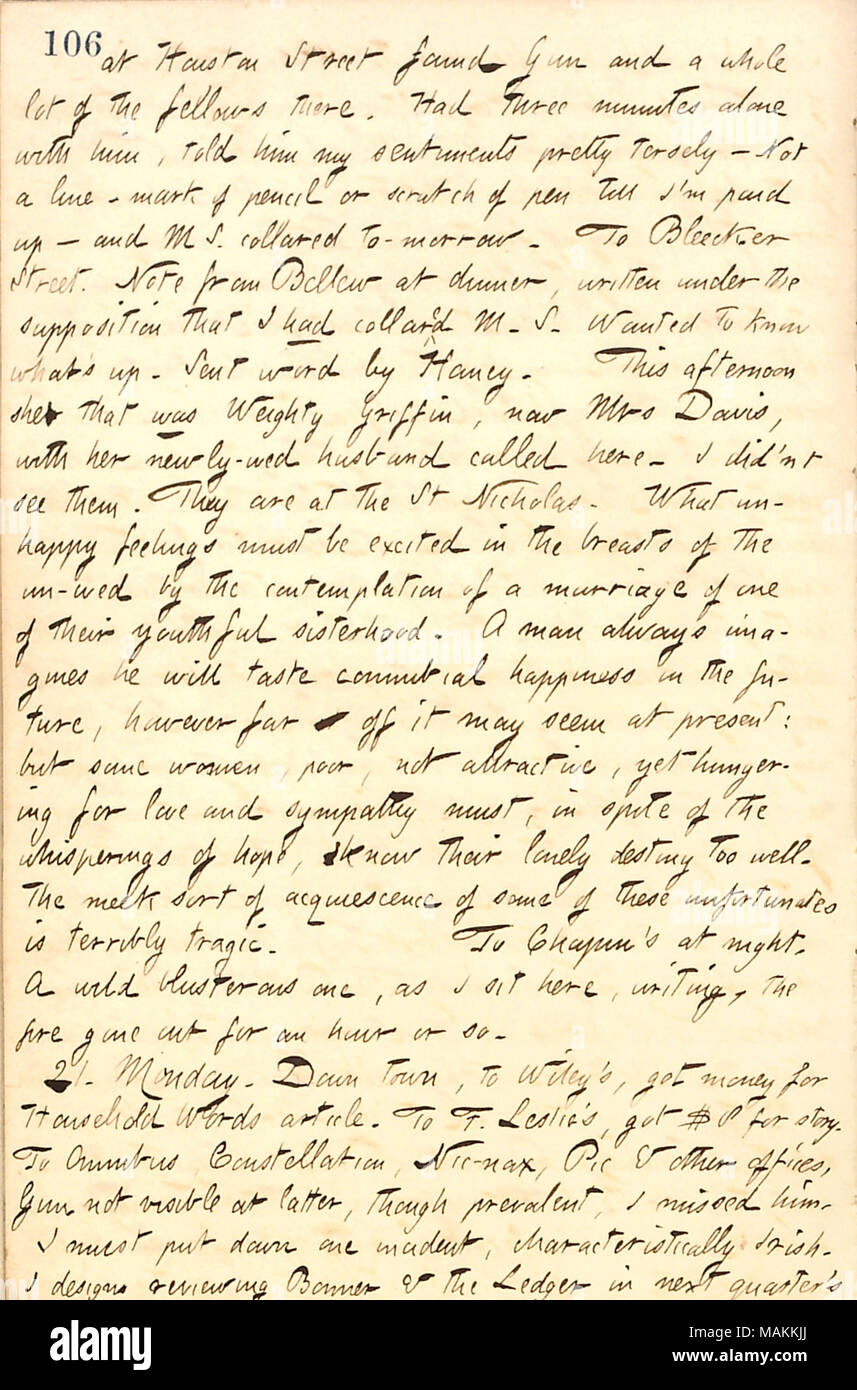 106
at Houston Street found Gun and a whole
lot of the fellows there. Had three minutes alone
with him, told him my sentiments pretty tersely — Not
a line - mark of pencil or scratch of pen till I'm paid
up — and M S. collared to-morrow. To Bleecker
Street. Note from Bellew at dinner, written under the
supposition that I had collar'd M. S. Wanted to know
what's up. Sent word by Haney. This afternoon
she that was Weighty Griffin, now Mrs Davis,
with her newly-wed husband called here. I did'nt
see them. They are at the St Nicholas. What un-
happy feelings must be excited in the breasts of the
un-wed by the contemplation of a marriage of one
of their youthful sisterhood. A man always ima-
gines he will taste connubial happiness in the fu-
ture, however far off it may seem at present:
but some women, poor, not attractive, yet hunger-
ing for love and sympathy must, in spite of the
whisperings of hope, know their lonely destiny too well.
The meek sort of acquiescence of some of these unfortunates
is terribly tragic. To Chapin's at night.
A wild blusterous one, as I sit here, writing, the
fire gone out for an hour or so.
21. Monday. Down town, to Wiley's, got money for
Household Words article. To F. Leslie's, got $8 for story.
To Omnibus, Constellation, Nic-nax, Pic & other offices,
Gun not visible at latter, though prevalent, I missed him.
I must put down one incident, characteristically Irish.
I designs reviewing Bonner & the Ledger in next quarter's
alamy
Image ID: MAKKJJ
www.alamy.com